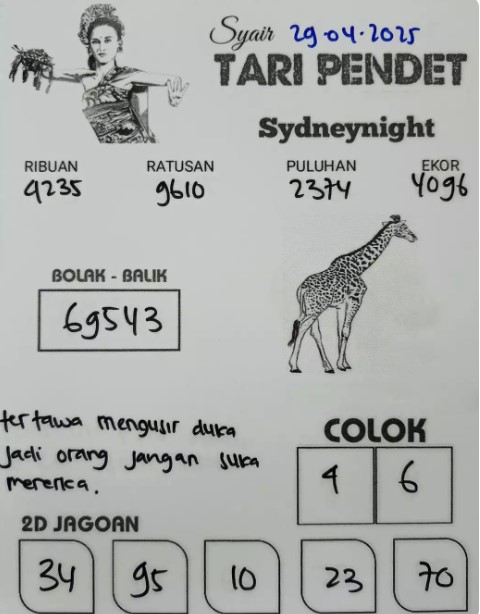 Syair 29-04-2025
TARI PENDET
Sydneynight
RIBUAN RATUSAN PULUHAN EKOR
9235 9610 2374 4096
BOLAK - BALIK
69543
tertawa mengusir duka
Jadi orang jangan suka
mererka.
COLOK
4 6
2D JAGOAN
34 95 10 23 70